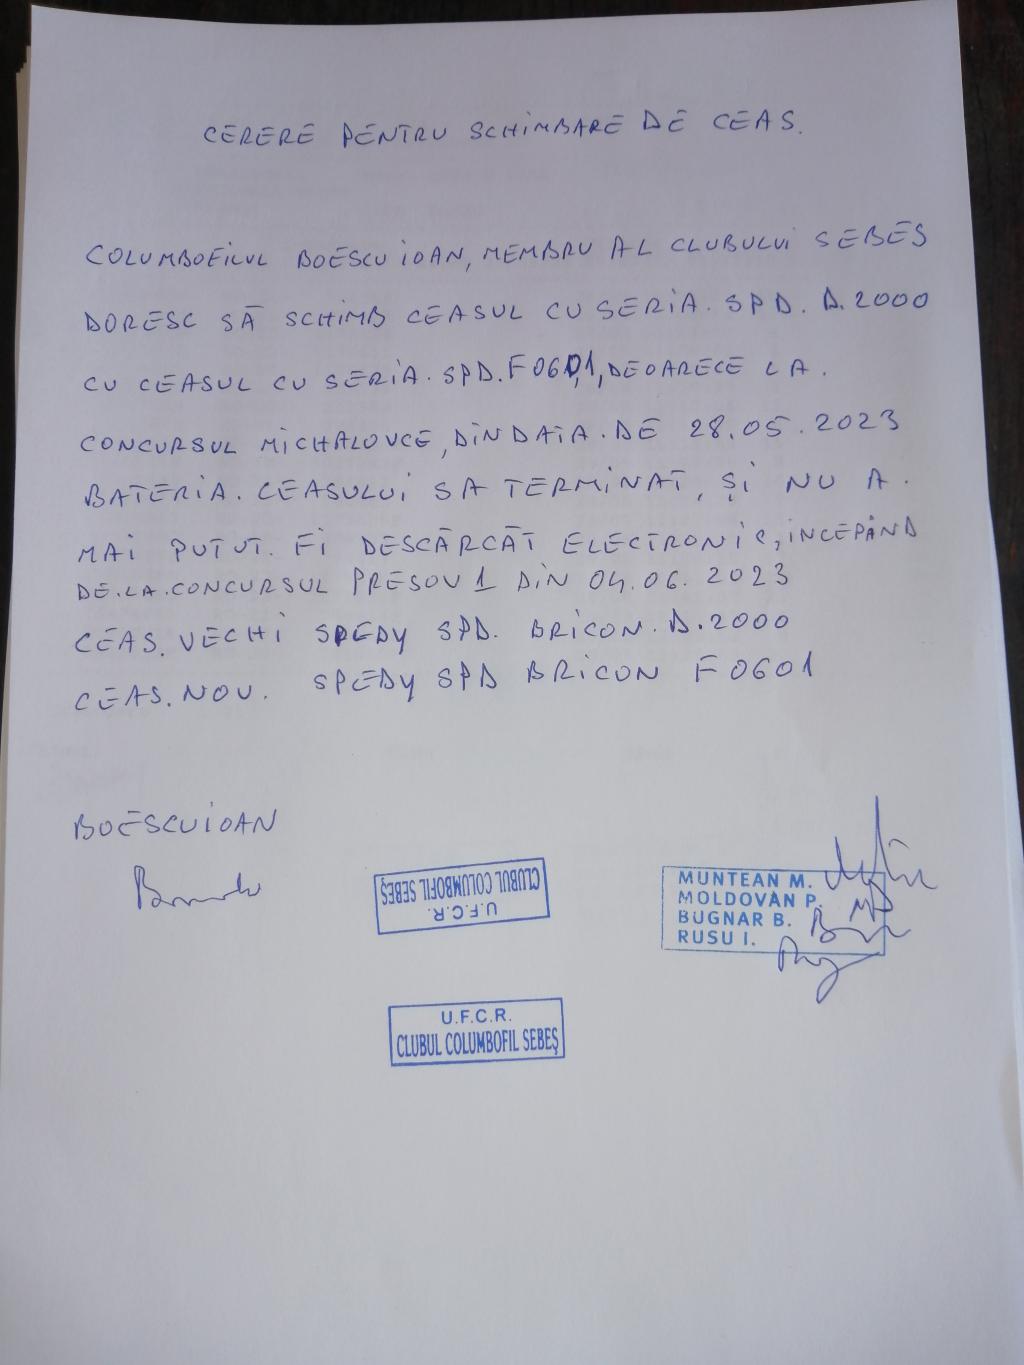 CERERE PENTRU SCHIMBARE DE CEAS.
COLUMBOFILUL BOESCU IOAN, MEMBRU AL CLUBULUI SEBEȘ
DORESC SĂ SCHIMB CEASUL CU SERIA. SPD. D.2000
CU CEASUL CU SERIA. SPD. F0601, DEOARECE LA.
CONCURSUL MICHALOVCE, DIN DAIA. DE 28.05.2023
BATERIA. CEASULUI SA TERMINAT, ȘI NU A.
MAI PUTUT. FI DESCĂRCĂT ELECTRONIC, ÎNCEPÂND
DE.LA.CONCURSUL PRESOV 1 DIN 04.06.2023
CEAS. VECHI SPEDY SPD. BRICON. D.2000
CEAS. NOU. SPEDY SPD BRICON F0601
BOESCU IOAN
U.F.C.R.
CLUBUL COLUMBOFIL SEBEȘ
MUNTEAN M.
MOLDOVAN P.
BUGNAR B.
RUSU I.
U.F.C.R.
CLUBUL COLUMBOFIL SEBEȘ